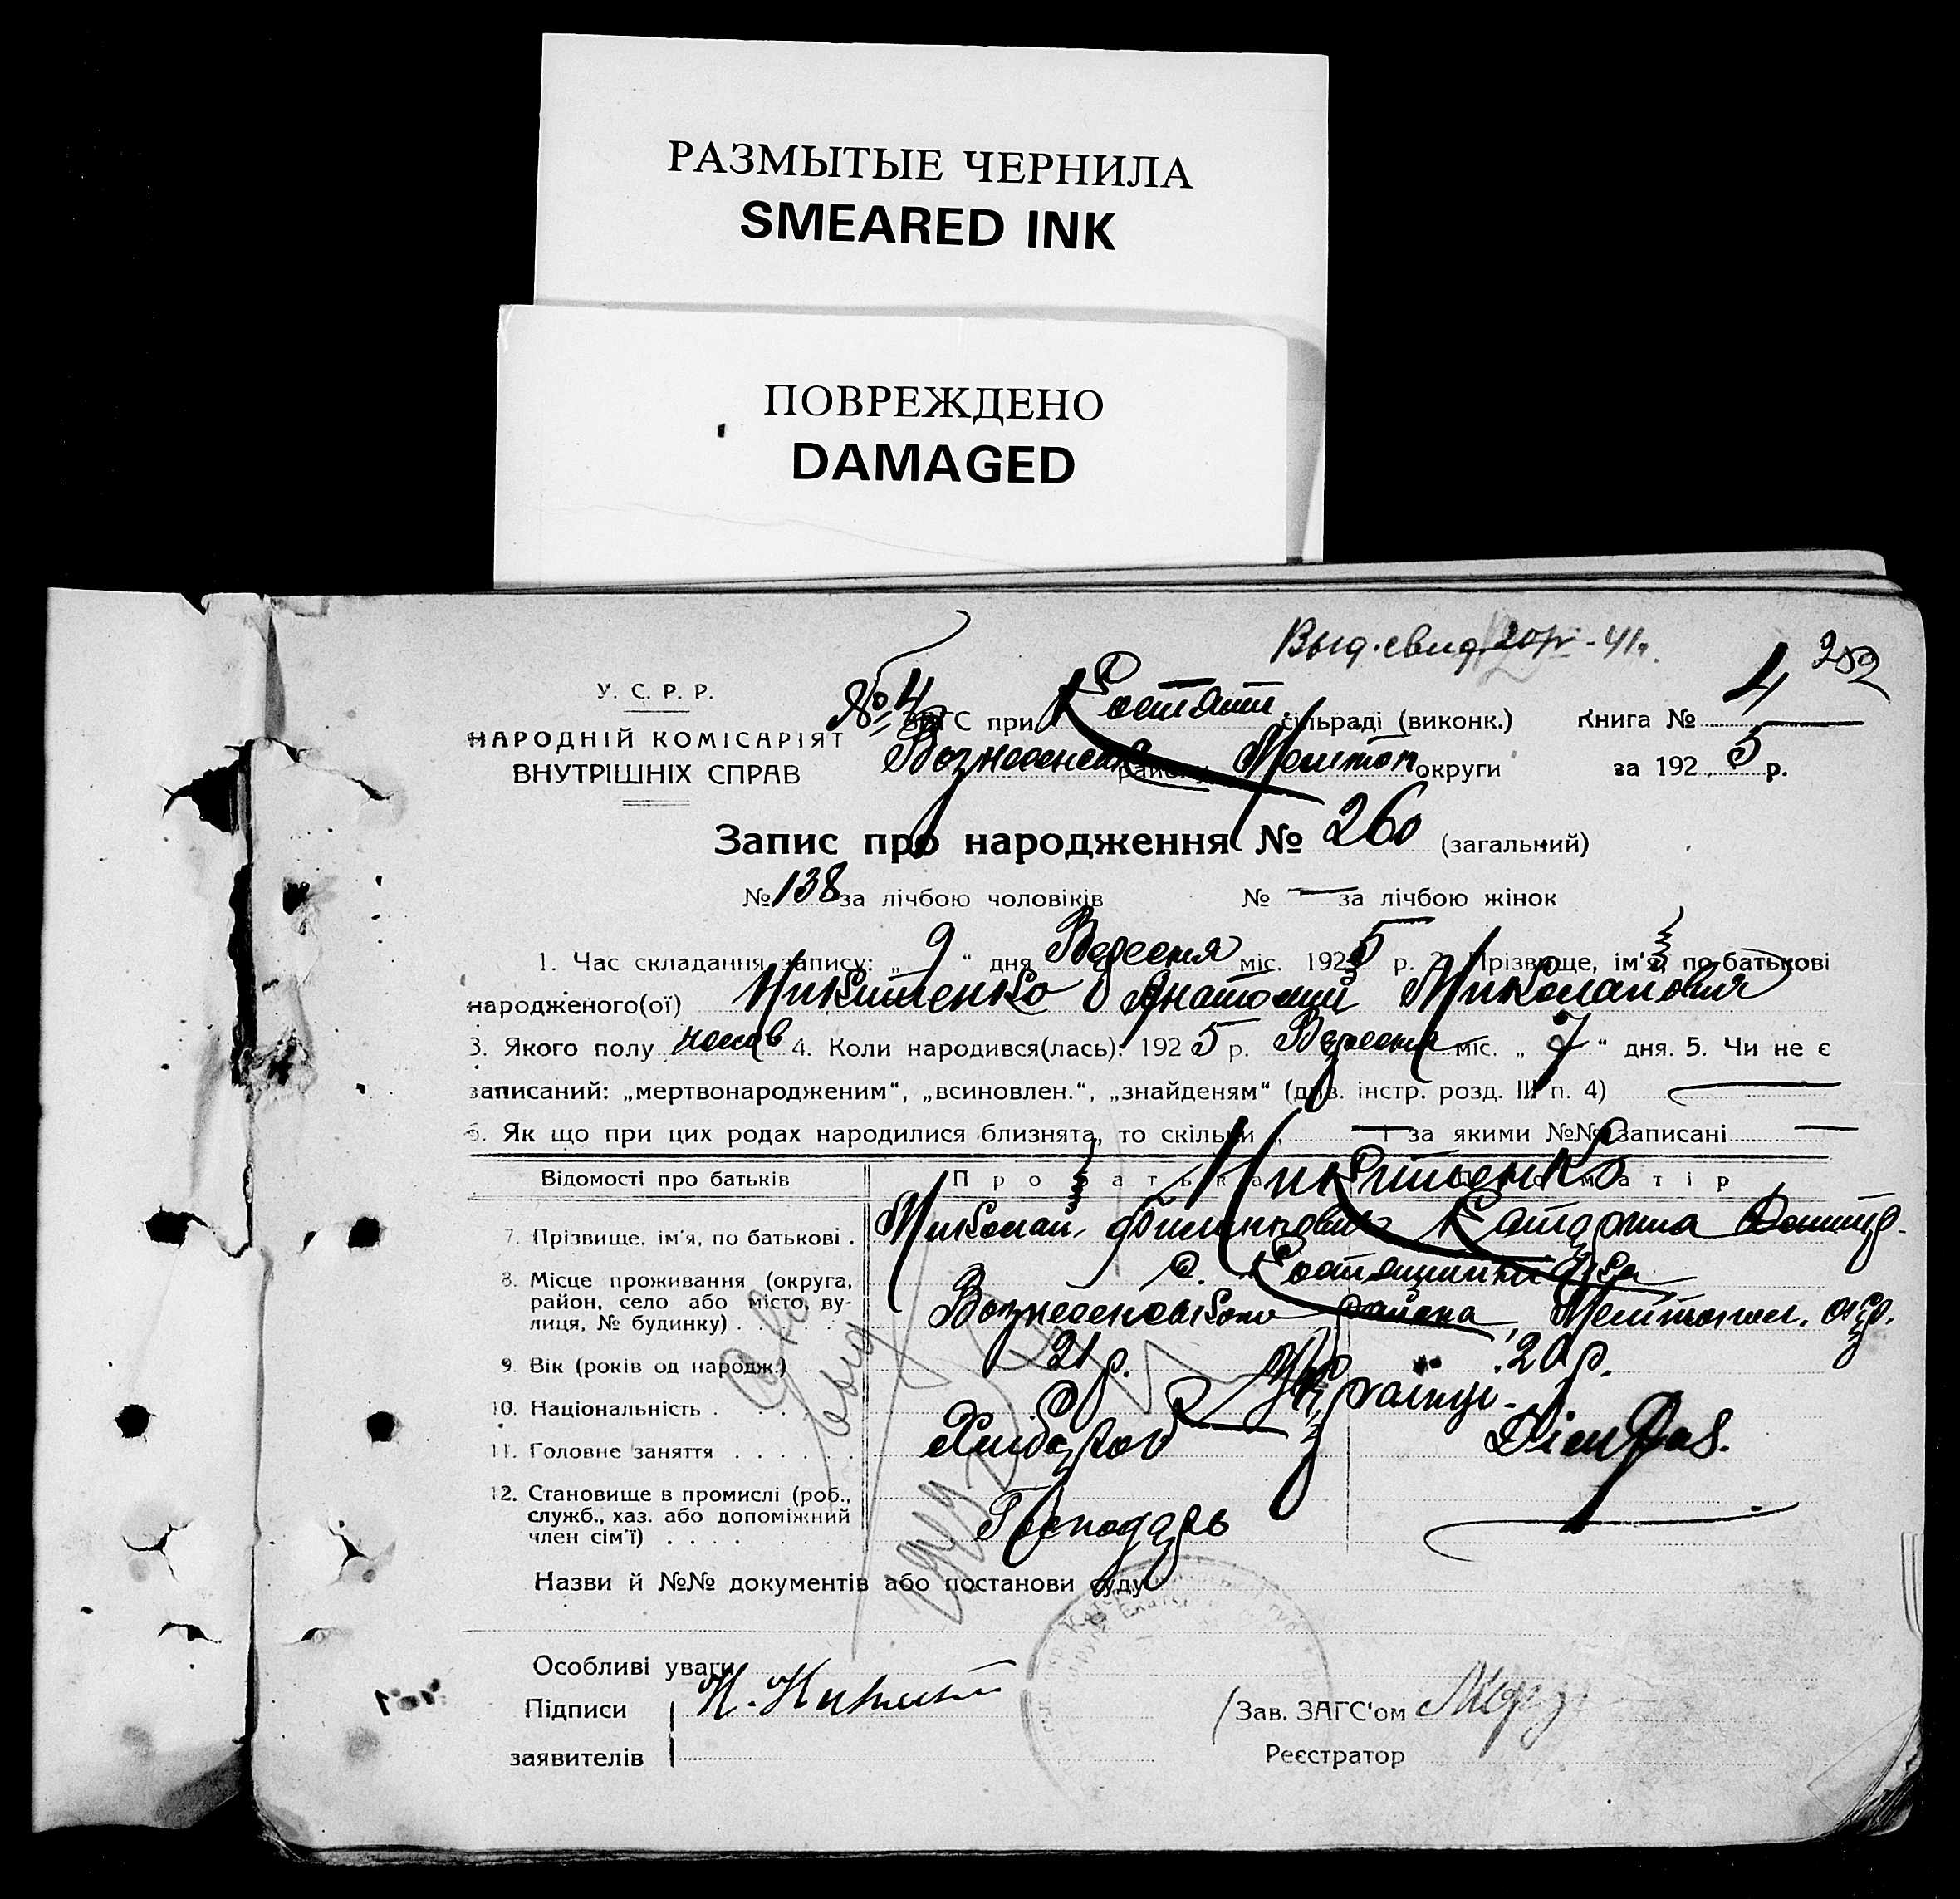 РАЗМЫТЫЕ ЧЕРНИЛА
SMEARED INK
ПОВРЕЖДЕНО
DAMAGED
Выд. свид. - 41г.
252
У. С. Р. Р.
НАРОДНІЙ КОМІСАРІЯТ
ВНУТРІШНІХ СПРАВ
№ 4 ЗАГС при Костянт сільраді (виконк.) Книга № 4
Вознесенськ району Мелітоп округи за 1925 р.
Запис про народження № 260 (загальний)
№ 138 за лічбою чоловіків № — за лічбою жінок
1. Час складання запису: „ 9 “ дня Вересня міс. 1925 р. 2. Прізвище, ім'я, по батькові
народженого(ої) Никитенко Анатолій Миколайович
3. Якого полу 4. Коли народився(лась): 1925 р. Вересня міс. „ 7 “ дня. 5. Чи не є
записаний: „мертвонародженим“, „всиновлен.“, „знайденям“ (див. інстр. розд. III п. 4) —
6. Як що при цих родах народилися близнята, то скільки — і за якими №№ записані —
Відомості про батьків Про батька Про матір
Никитенко
7. Прізвище, ім'я, по батькові . Микола Пилипович Катерина
8. Місце проживання (округа,
район, село або місто, ву-
лиця, № будинку) . .
с. Костянтинівка
Вознесенського района, Мелітопол. окр.
9. Вік (років од народж.) 21 р. 20 р.
10. Національність . Українці
11. Головне заняття . . . . . . Хлібороб
12. Становище в промислі (роб.,
служб., хаз. або допоміжний
член сім'ї) . . . . Господарь —
Назви й №№ документів або постанови суду
Особливі уваги
Підписи
заявителів
Н. Никит
Зав. ЗАГС'ом
Реєстратор